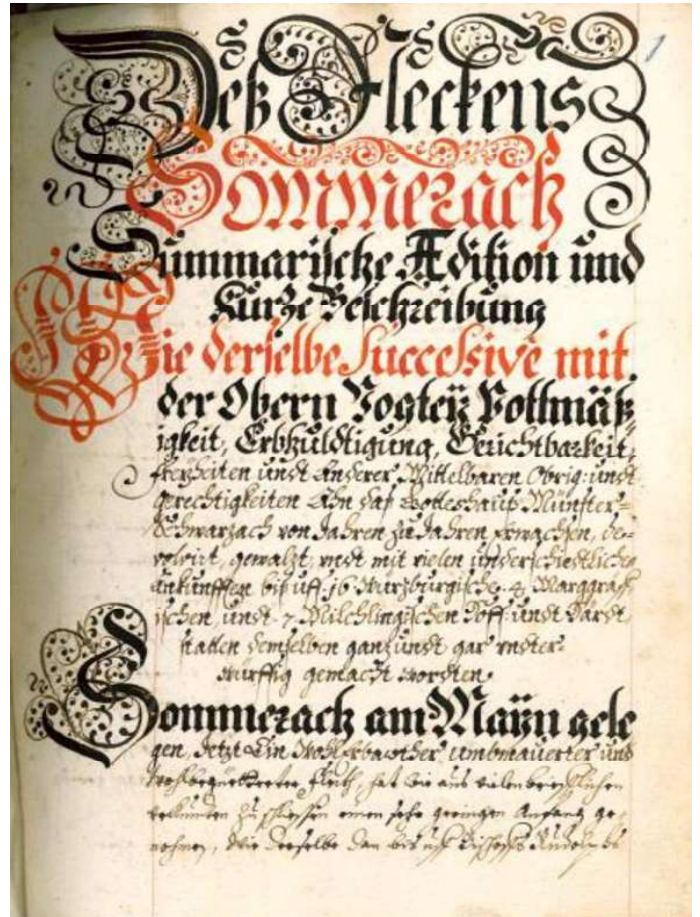 1
Deß Fleckens
Sommerach
Summarische Ædition und
kurze Beschreibung
Wie derselbe Successivè mit
der Obern Vogteÿ Bottmäß=
igkeit, Erbhuldtigung, Gerichtbarkeit,
freyheiten undt anderer Mittelbaren Obrig: undt
gerechtigkeiten Ahn daß Gotteshauß Münster=
Schwarzach von Jahren zu Jahren erwachsen, de=
volvirt, gewalzt, undt mit vielen underschiedtlichen
ankunfften biß uff 16 Würzburgische 4 Marggräff
ischen, undt 7 Milchlingischen Hoff: undt
statten demselben ganz undt gar undter=
würffig gemacht wordten.
Sommerach am Maÿn gele
gen, Jetzt Ein Wohlerbawther umbmauerter und
hat wie aus vielen brieflichen
zu schliessen einen sehr geringen Anfang ge=
nohmen, Wie derselbe dan bis uff Bischoffs Rudolphs